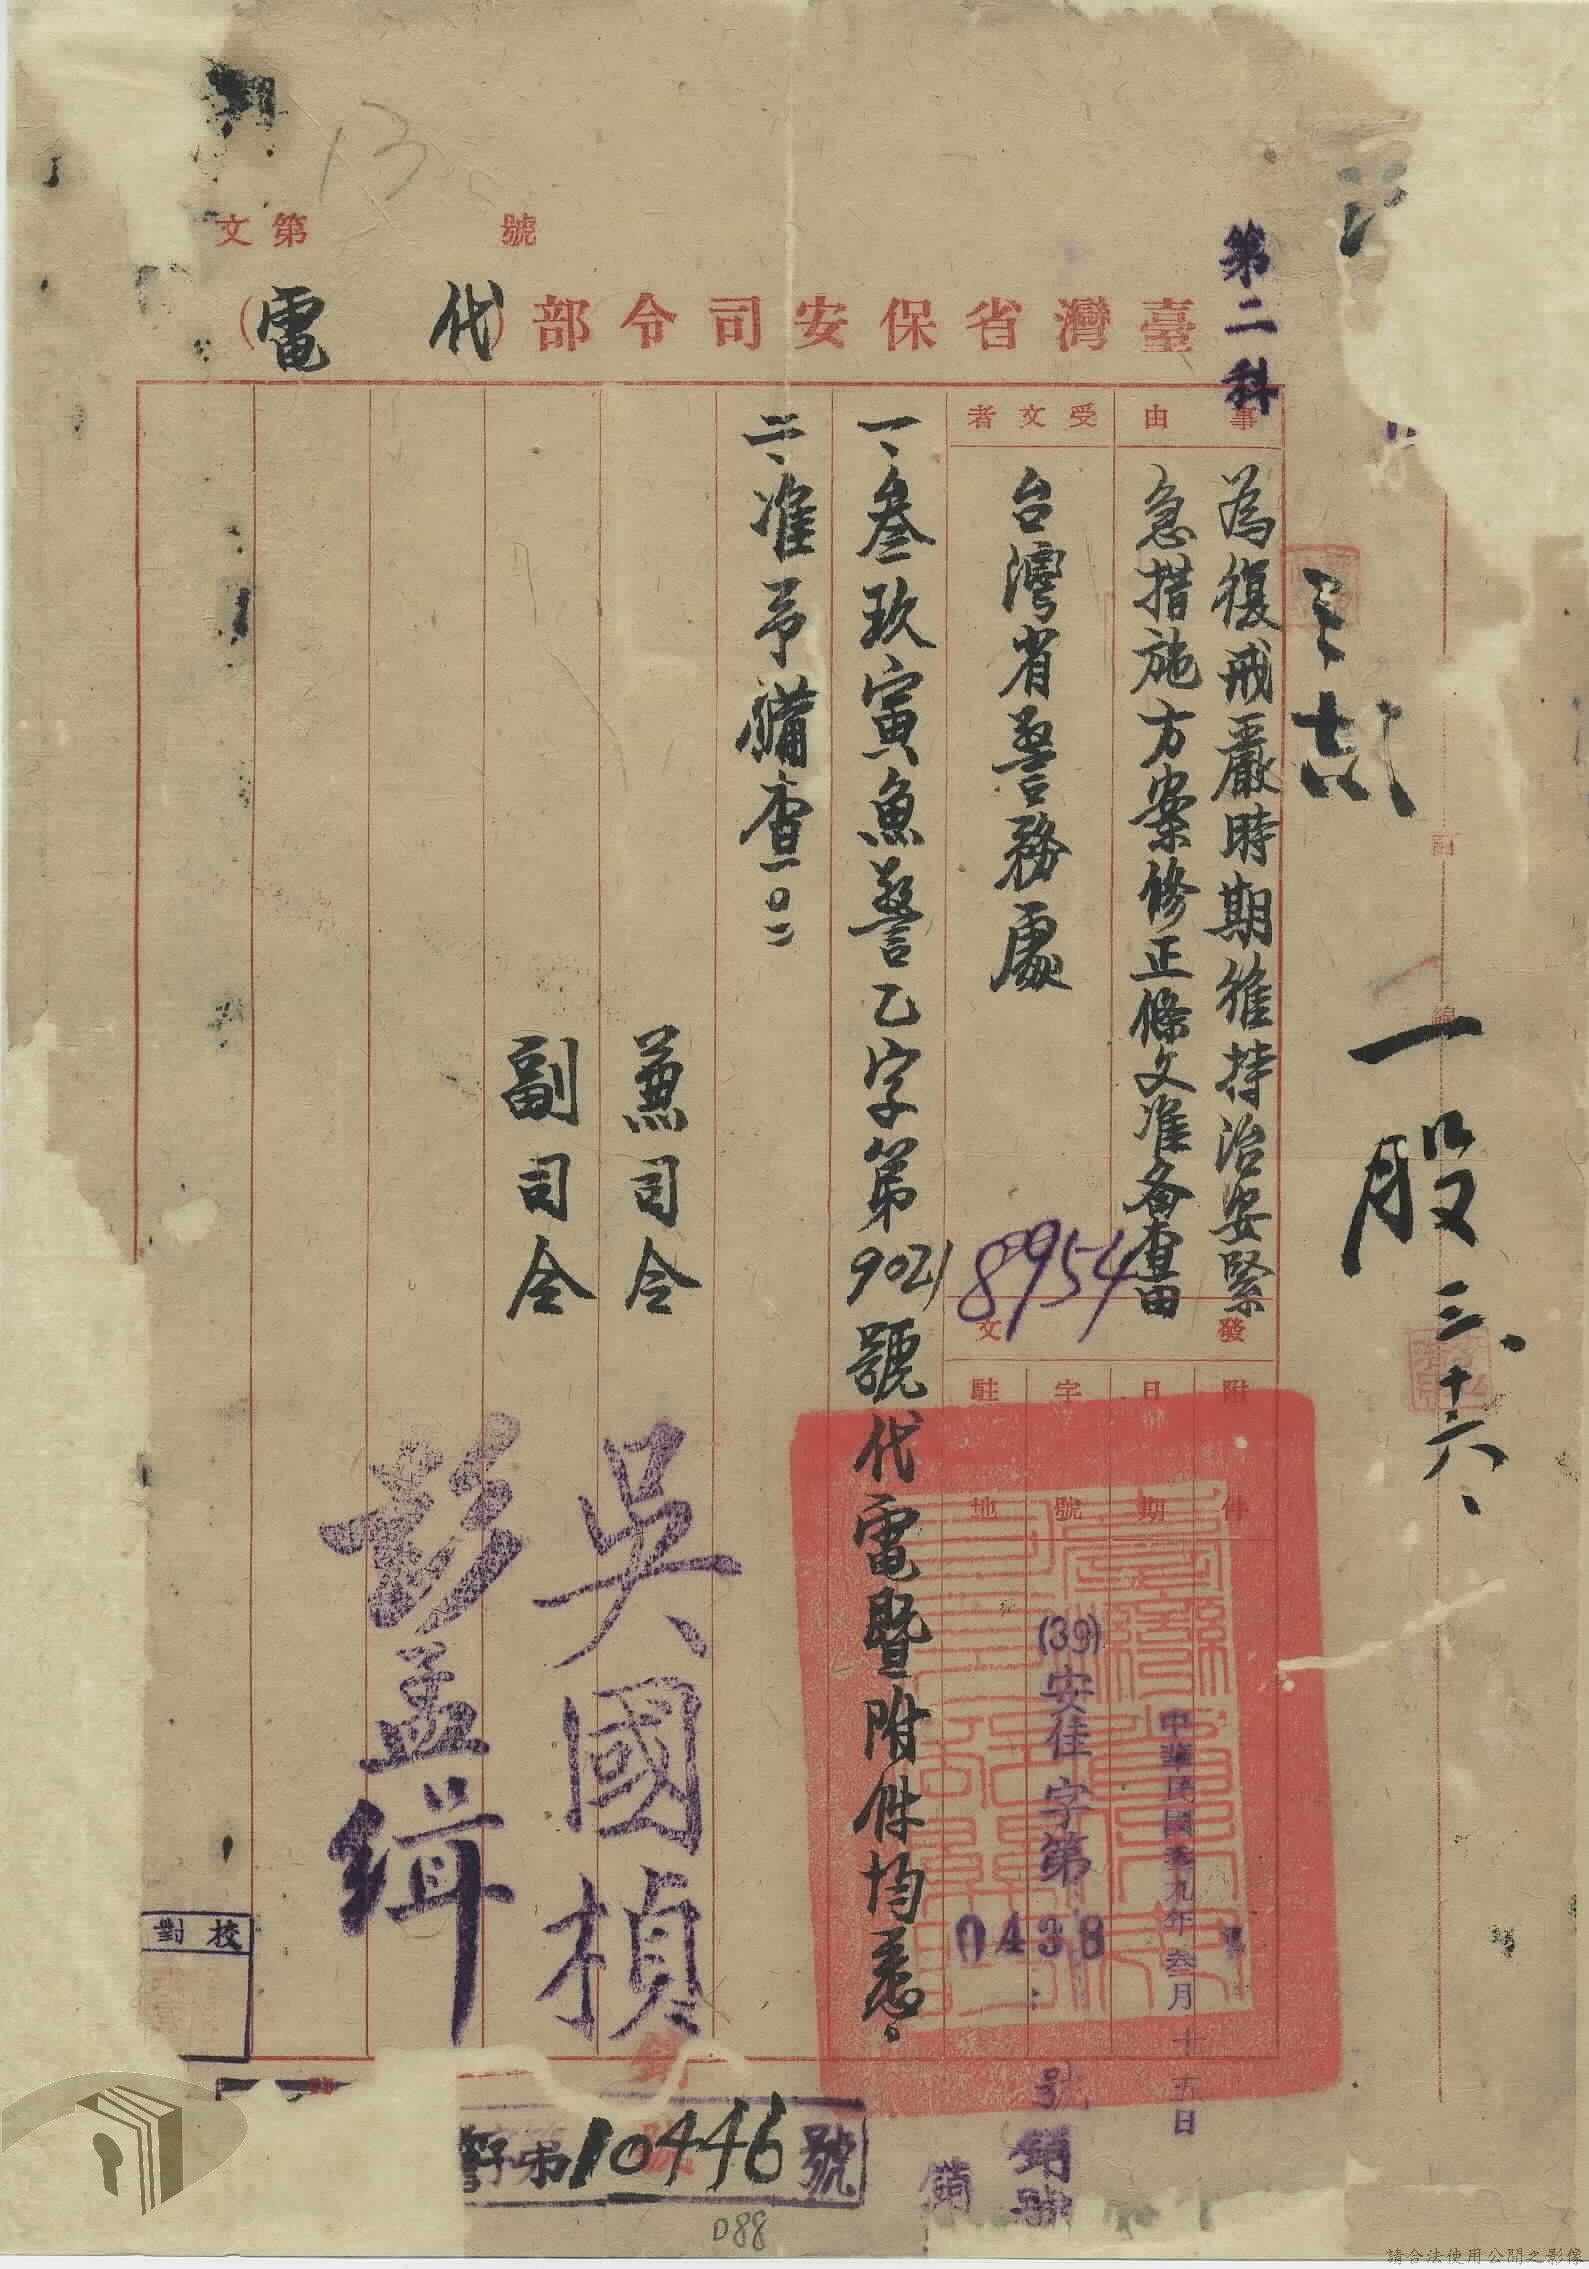 13
文第　　號
臺灣省保安司令部
代電
第二科
一股
三、十六、
事由
為復戒嚴時期維持治安緊
急措施方案修正條文准备查由
受文者
台灣省警務處
8954
發文
附件
日期
中華民國叁九年叁月十五日
字號
(39)安佳字第0438號
駐地
一、叁玖寅魚警乙字第9021號代電暨附件均悉。
二、准予備查。
兼司令
吳國楨
副司令
彭孟緝
校對
銷號
字第10446號
088
請合法使用公開之影像